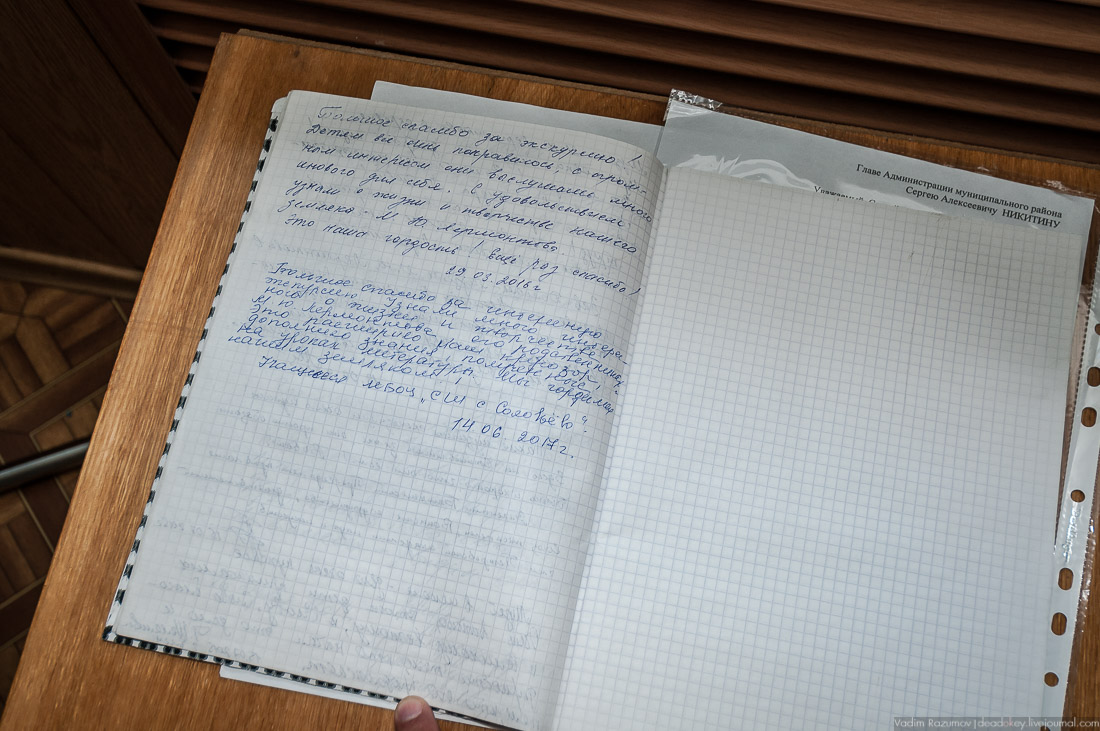 Большое спасибо за экскурсию!
Детям она понравилось, с огром-
ным интересом они выслушали много
нового для себя. С удовольствием
узнали о жизни и творчестве нашего
земляка М. Ю. Лермонтова.
Это наша гордость! Еще раз спасибо!
19.03.2016 г
Большое спасибо за интересную
экскурсию. Узнали много интерес-
ного о жизни и творчестве
М Ю Лермонтова, его родственниках.
Это расширило наш кругозор,
дополнило знания, полученные
на уроках литературы. Мы гордимся
нашим земляком!
Учащиеся МБОУ „СШ с Соловьёво".
14 06. 2017 г.
Главе Администрации муниципального района
Сергею Алексеевичу НИКИТИНУ
Vadim Razumov | deadokey.livejournal.com